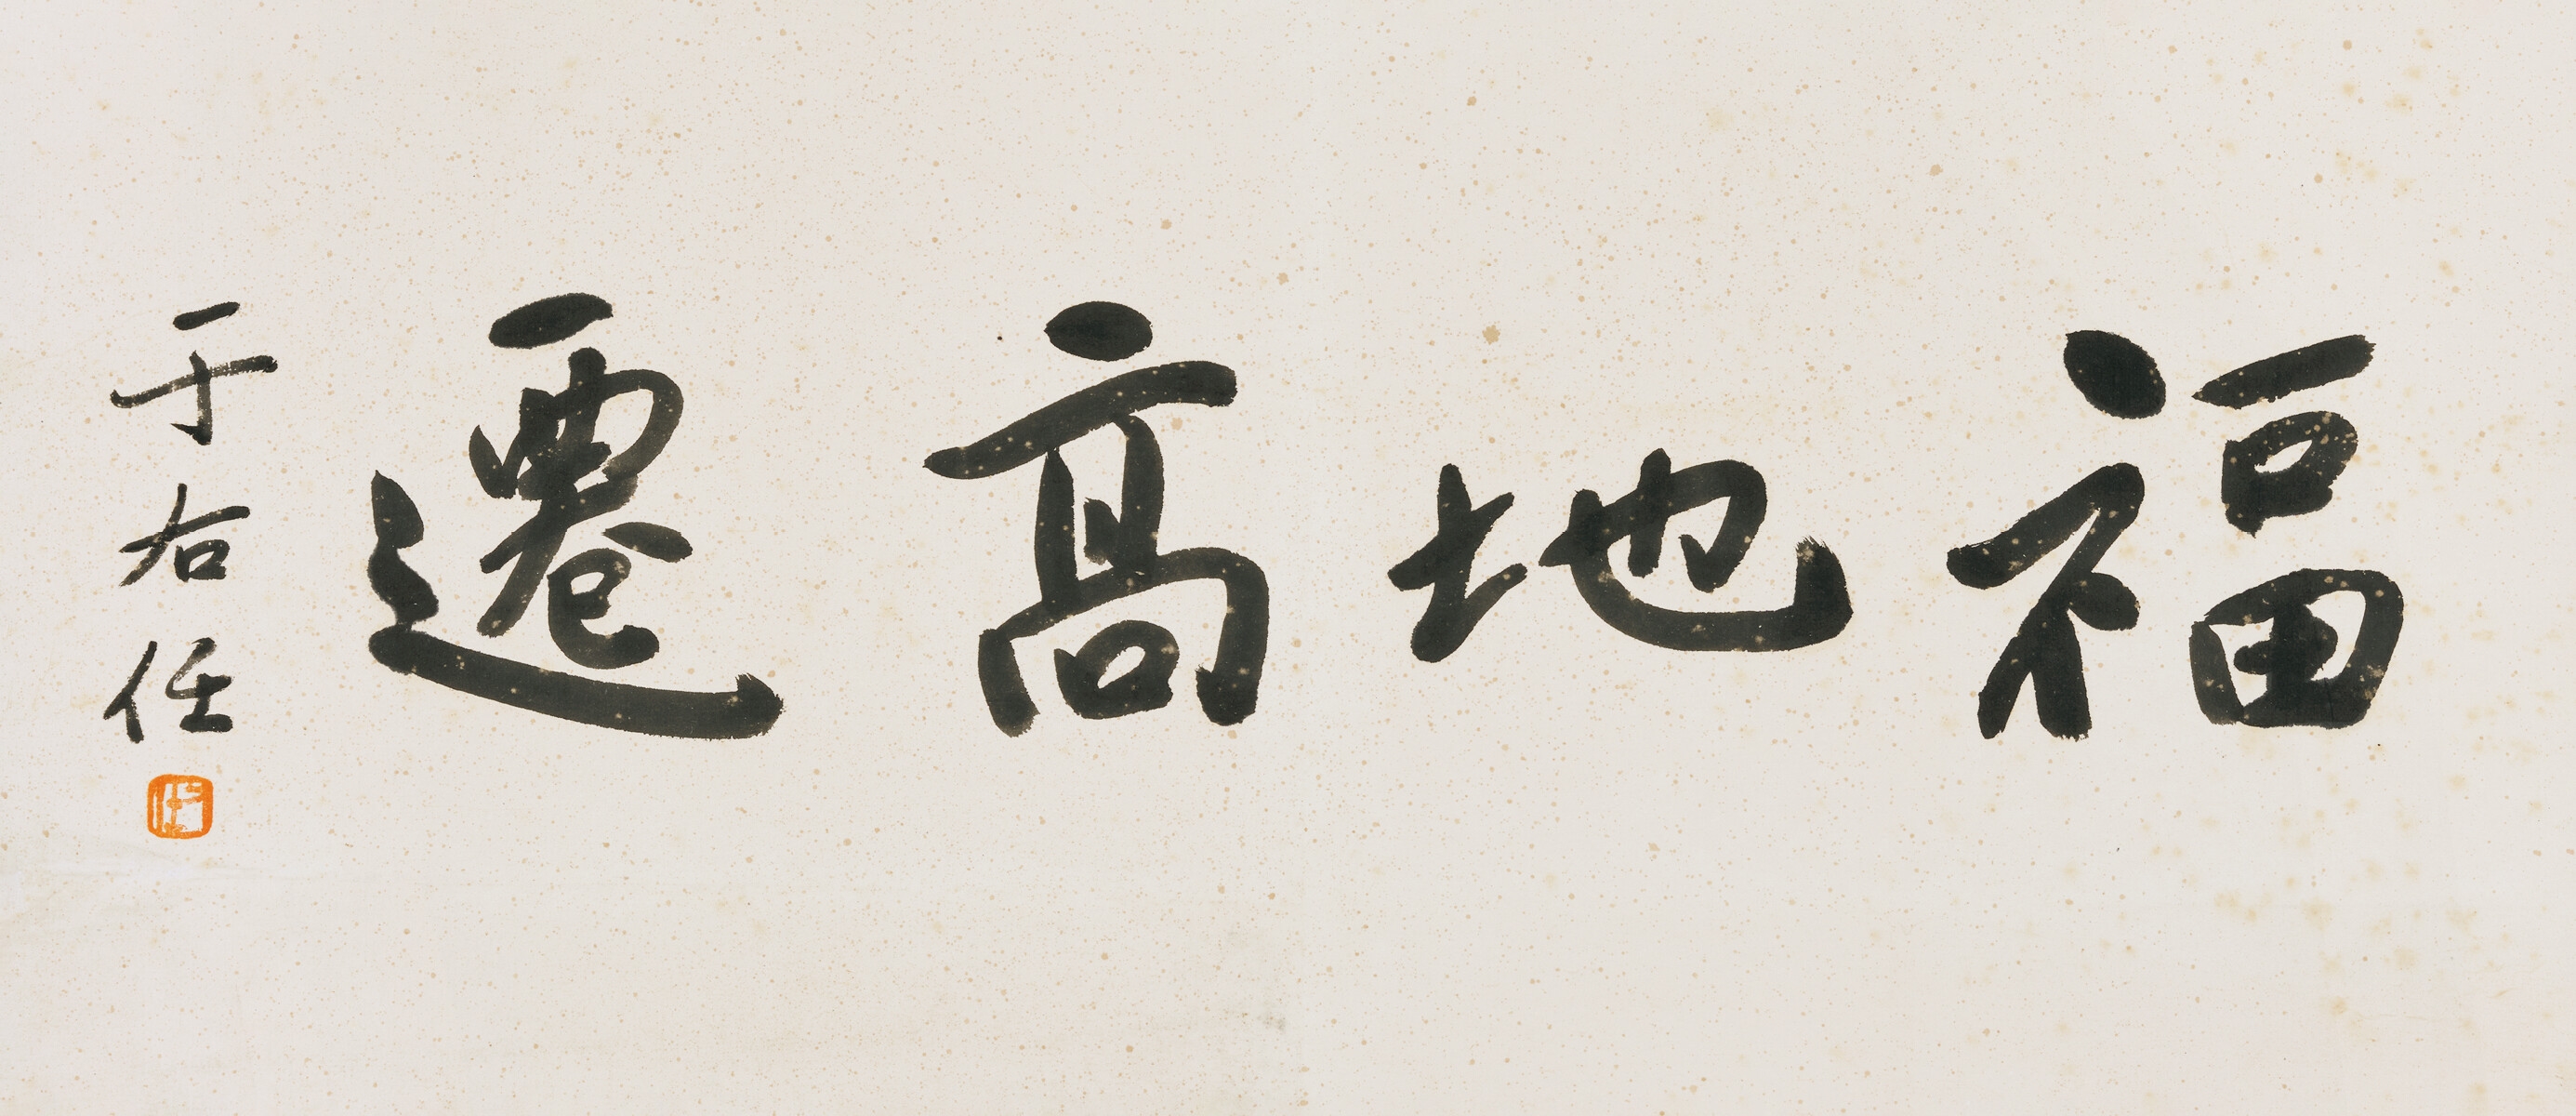 福地高遷
于右任